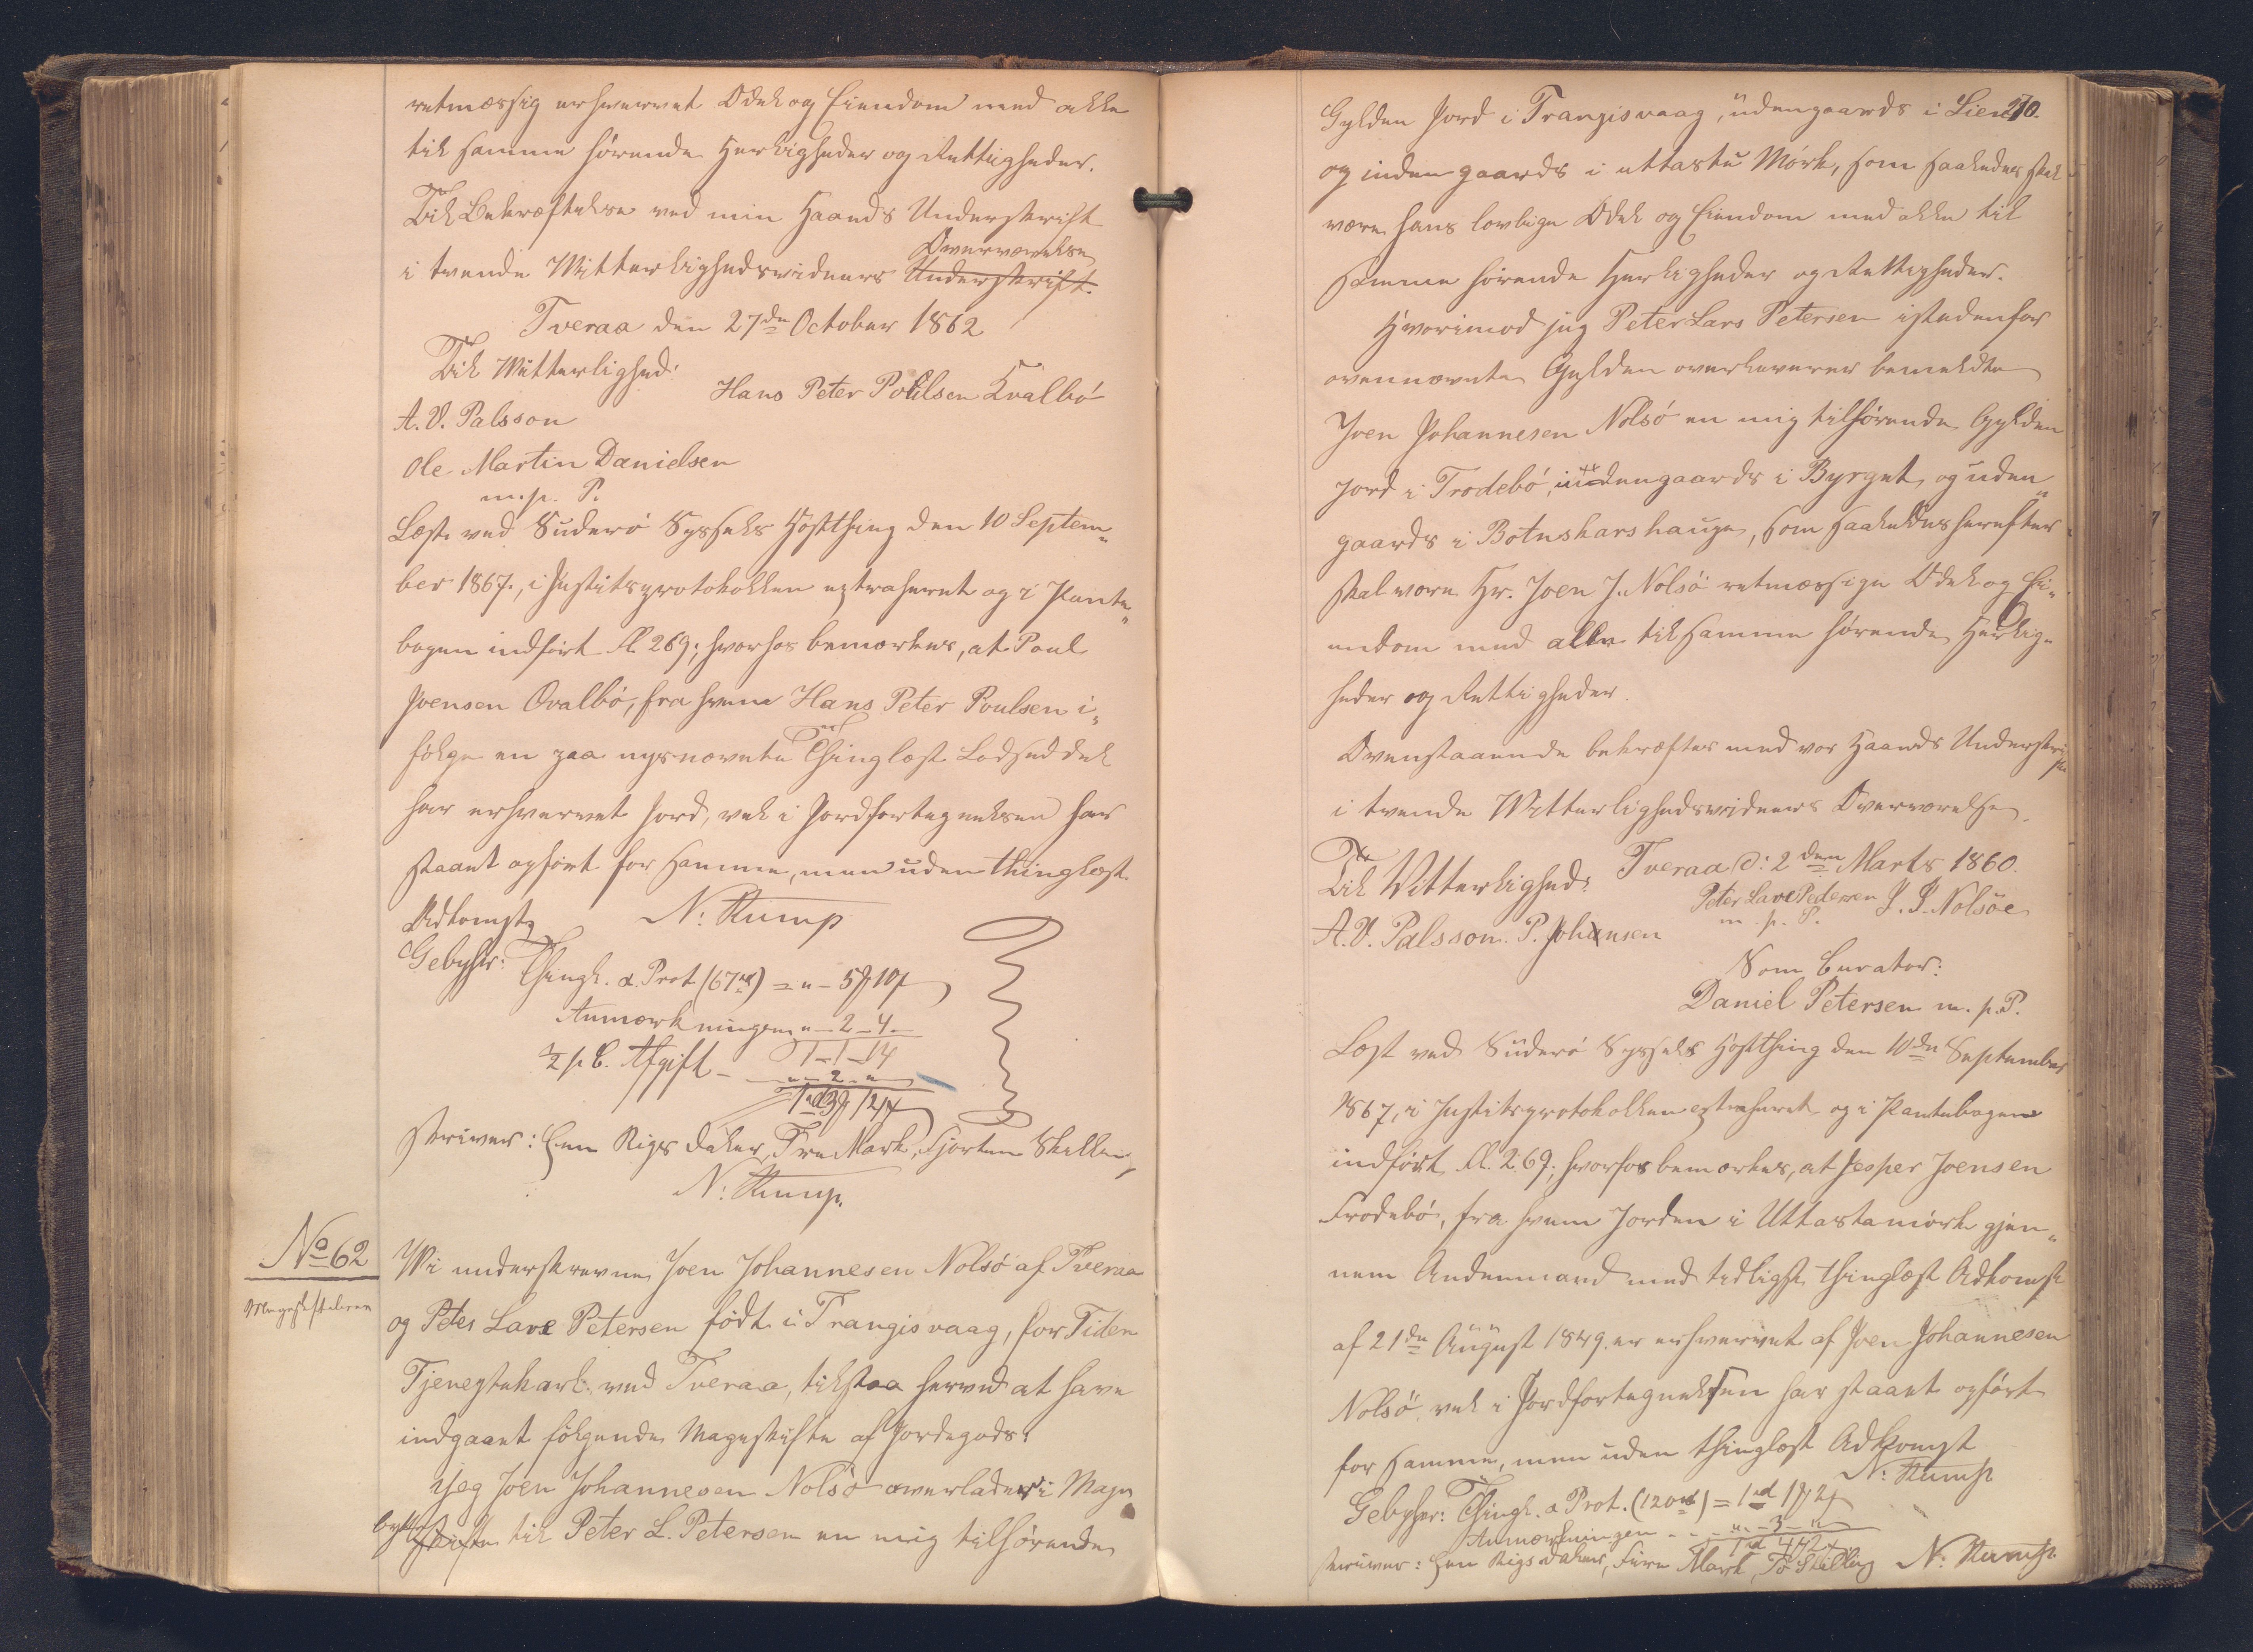 retmæssig erhvervet Odel og Eiendom med alle
til samme hørende Herligheder og Rettigheder.
Til Bekræftelse ved min Haands Underskrift
Overværelse
i tvende Witterlighedsvidners Underskrift.
Tveraa den 27de October 1862
Til Witterlighed:
Hans Peter Poulsen Kvalbø
A. V. Palsson
Ole Martin Danielsen
m. p. P.
Læst ved Suderø Syssels Høstthing den 10 Septem„
ber 1867., i Justitsprotokollen extraheret og i Pante„
bogen indført fl. 269; hvorhos bemærkes, at Poul
Joensen Qvalbø, fra hvem Hans Peter Poulsen i„
følge en paa nysnævnte Thing læst Lodseddel
har erhvervet Jord, vel i Jordfortegnelsen har
staaet opført for samme, men uden thinglæst
Adkomst
N: Rump
Gebyhr: Thingl. & Prot (67rd) = „ – 5 10
Anmærkningen „ – 2 – 4 –
1 – 1 – 14
½ p C. Afgift – „ – 2 – „
1rd 3 14
skriver: Een Rigsdaler, Tre Mark, Fjorten Skilling
N: Rump.
No 62
Mageskiftebrev
Wi underskrevne Joen Johannesen Nolsø af Tveraa
og Peter Lars Petersen født i Trangisvaag, for Tiden
Tjenestekarl ved Tveraa, tilstaa herved at have
indgaaet følgende Mageskifte af Jordegods:
Jeg Joen Johannesen Nolsø overlader i Mage
bytte skifte til Peter L. Petersen en mig tilhørende
270.
Gylden Jord i Trangisvaag, udengaards i Lien
og inden gaards i uttastu Mørk, som saaledes skal
være hans lovlige Odel og Eiendom med alle til
samme hørende Herligheder og Rettigheder.
Hvorimod jeg Peter Lars Petersen istedenfor
ovennævnte Gylden overleverer bemeldte
Joen Johannesen Nolsø en mig tilhørende Gylden
Jord i Frodebø, indengaards i Byrget, og uden„
gaards i Botnskarshauge, som saaledes herefter
skal være Hr. Joen J. Nolsø retmæssige Odel og Ei„
endom med alle til samme hørende Herlig„
heder og Rettigheder.
Ovenstaaende bekræftes med vor Haands Underskrift
i tvende Witterlighedsvidners Overværelse.
Tveraa d: 2den Marts 1860.
Til Vitterlighed:
Peter Lars Pedersen J. J. Nolsøe
m. p. P.
A. V. Palsson. P. Johansen
Som Curator:
Daniel Petersen m. p. P.
Læst ved Suderø Syssels Høstthing den 10de September
1867, i Justitsprotokollen extraheret og i Pantebogen
indført fl. 269; hvorhos bemærkes, at Jesper Joensen
Frodebø, fra hvem Jorden i Uttastamørk gjen„
nem Andenmand med tidligst thinglæst Adkomst
af 21de August 1849. er erhvervet af Joen Johannesen
Nolsø, vel i Jordfortegnelsen har staaet opført
for samme, men uden thinglæst Adkomst
N: Rump
Gebyhr: Thingl. & Prot. (120rd) = 1rd 1 2
Anmærkningen – – „ – 3 – „
1rd 4 2
skriver: Een Rigsdaler, Fire Mark, To Skilling N: Rump